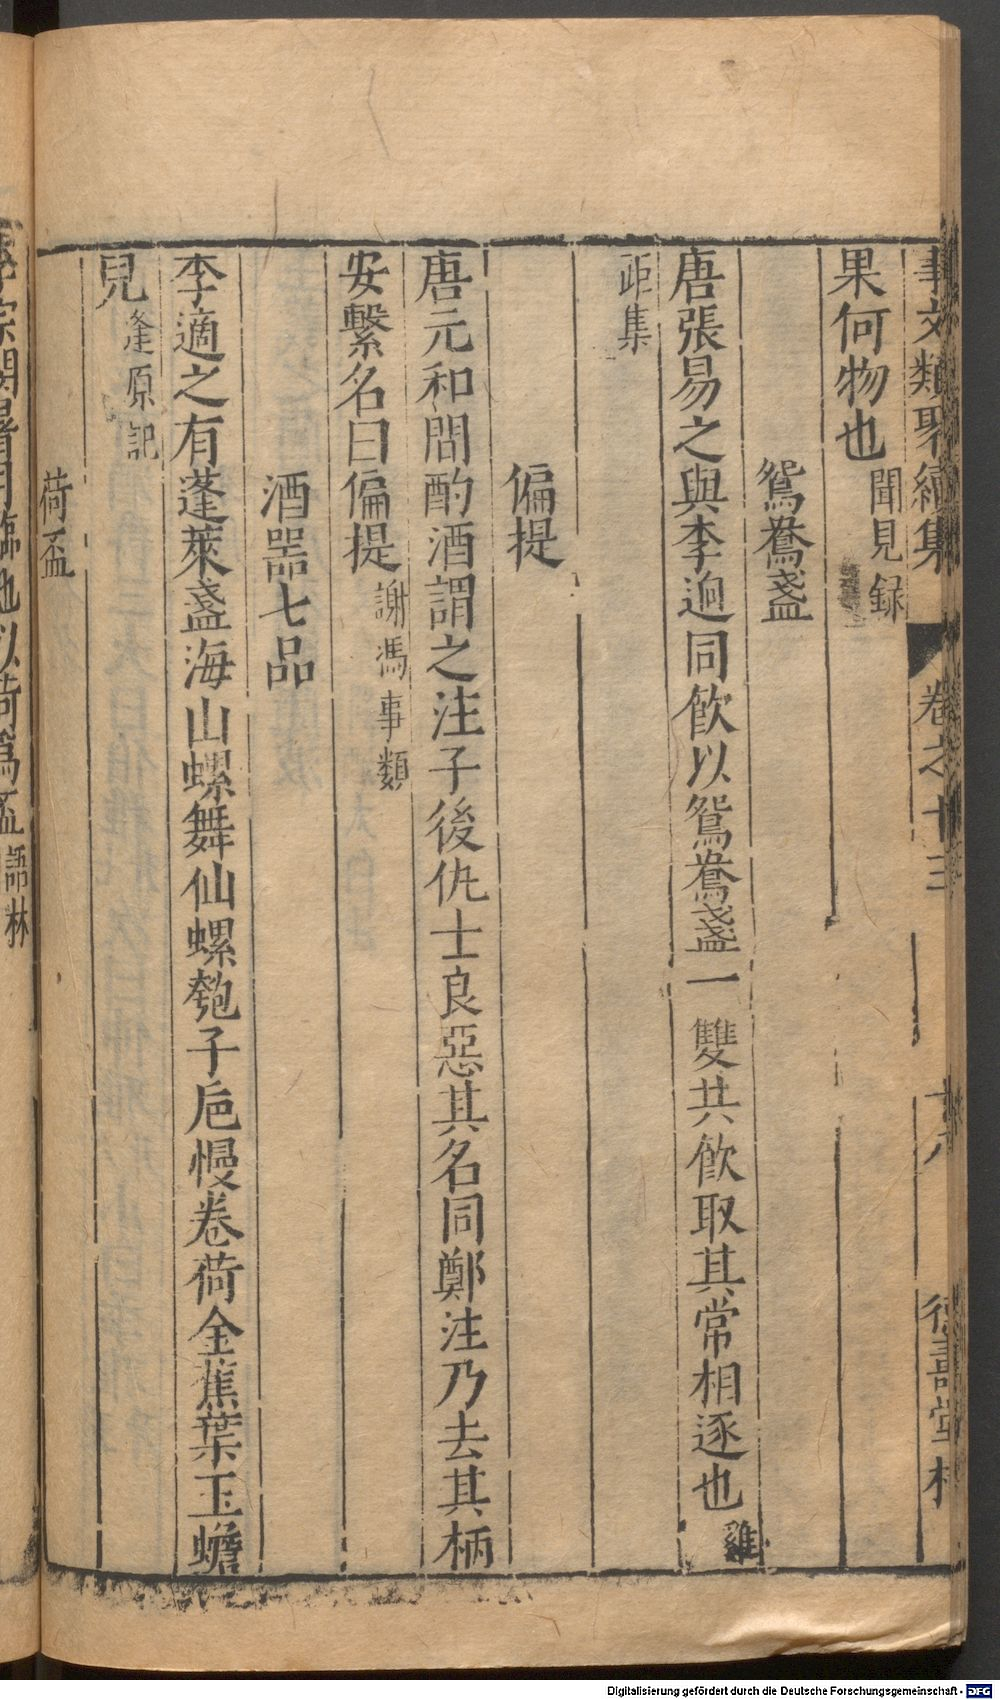 事文類聚續集 卷之十三 十八 德壽堂梓
果何物也聞見録
鴛鴦盞
唐張易之與李迥同飲以鴛鴦盞一雙共飲取其常相逐也雞
距集
偏提
唐元和間酌酒謂之注子後仇士良惡其名同鄭注乃去其柄
安繫名曰偏提謝馮事類
酒器七品
李適之有蓬萊盞海山螺舞仙螺匏子卮慢卷荷金蕉葉玉蟾
兒逢原記
荷盃
李宗閔暑月臨池以荷爲盃語林
Digitalisierung gefördert durch die Deutsche Forschungsgemeinschaft - DFG